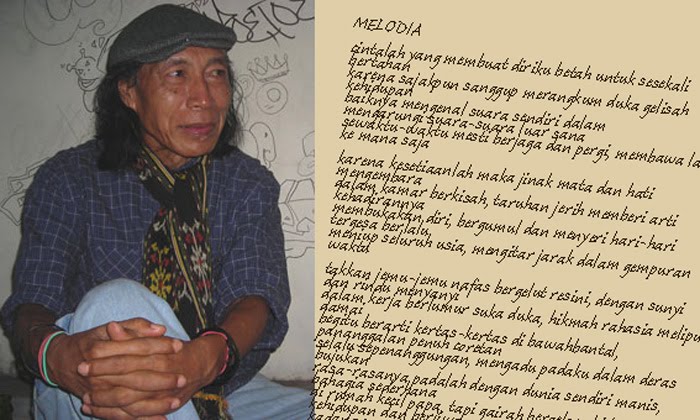 MELODIA
cintalah yang membuat diriku betah untuk sesekali
bertahan
karena sajakpun sanggup merangkum duka gelisah
kehidupan
baiknya mengenal suara sendiri dalam
mengarungi suara-suara luar sana
sewaktu-waktu mesti berjaga dan pergi, membawa la
ke mana saja
karena kesetiaanlah maka jinak mata dan hati
mengembara
dalam kamar berkisah, taruhan jerih memberi arti
kehadirannya
membukakan diri, bergumul dan menyeri hari-hari
tergesa berlalu,
meniup seluruh usia, mengitar jarak dalam gempuran
waktu
takkan jemu-jemu nafas bergelut resini, dengan sunyi
dan rindu menyanyi
dalam kerja berlumur suka duka, hikmah rahasia melipu
damai
begitu berarti kertas-kertas di bawahbantal,
pananggalan penuh coretan
selalu sepenanggungan, mengadu padaku dalam deras
bujukan
rasa-rasanya padalah dengan dunia sendiri manis,
bahagia sederhana
di rumah kecil papa, tapi gairah
kehidupan dan